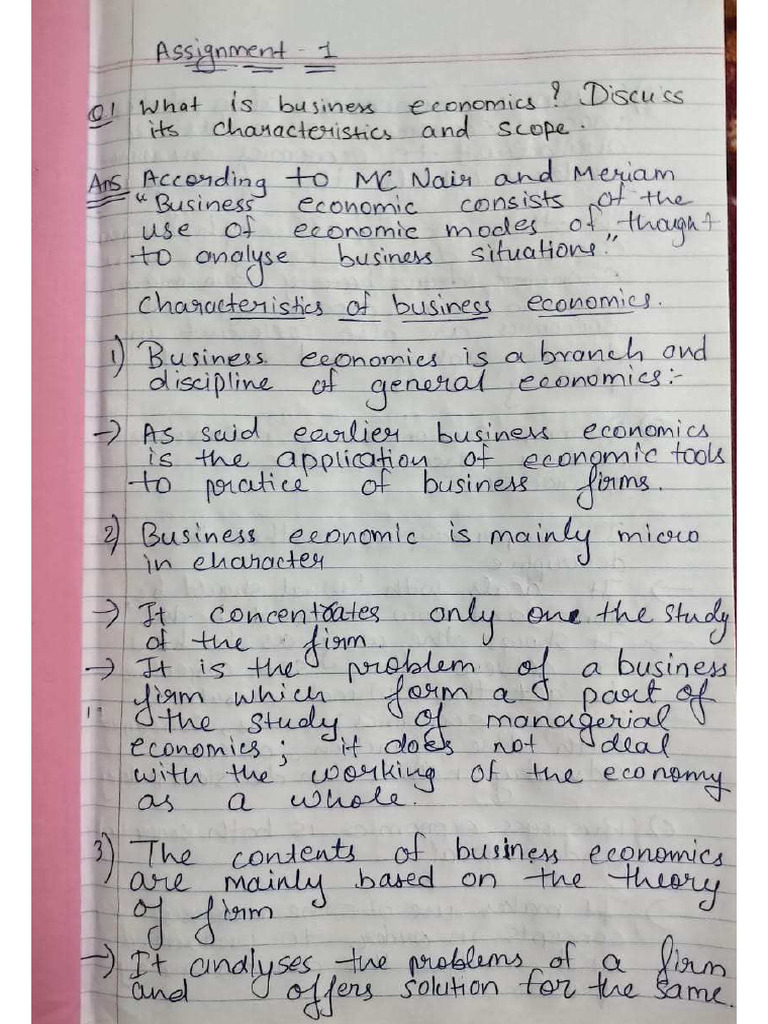 Assignment - 1
Q1 What is business economics? Discuss
its characteristics and scope.
Ans According to MC Nair and Meriam
"Business economic consists of the
use of economic modes of thought
to analyse business situations."
Characteristics of business economics.
1) Business economics is a branch and
discipline of general economics:-
→ As said earlier business economics
is the application of economic tools
to pratice of business firms.
2) Business economic is mainly micro
in character
→ It concentrates only one the study
of the firm
→ It is the problem of a business
firm which form a part of
the study of managerial
economics; it does not deal
with the working of the economy
as a whole.
3) The contents of business economics
are mainly based on the theory
of firm
→ It analyses the problems of a firm
and offers solution for the same.